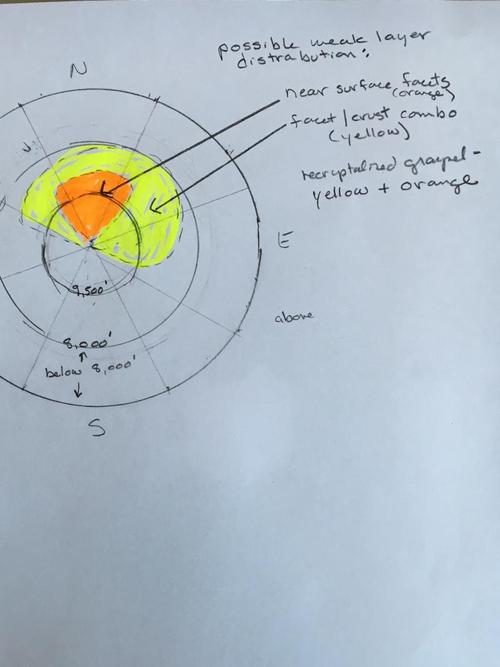 possible weak layer
distrabution:
N
near surface facets
(orange)
facet/crust combo
(yellow)
recrystalized graupel-
yellow + orange
E
9,500'
above
8,000'
below 8,000'
S